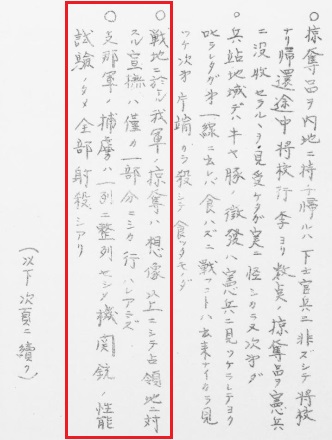 ○掠奪品ヲ内地ニ持チ帰ルハ下士官兵ニ非ズシテ将校
ナリ帰還途中将校行李ヨリ数点ノ掠奪品ヲ憲兵
ニ没収セラルヽヲ見受ケタガ実ニ怪シカラヌ次第ダ
○兵站地域デハ牛ヤ豚ノ徴発ハ憲兵ニ見ツケラレテヨク
叱ラレタガ第一線ニ去レバ食ハズニ戦フコトハ出来ナイカラ見
ツケ次第片端カラ殺シテ食
○戦地ニ於ケル我軍ノ掠奪ハ想像以上ニシテ占領地ニ対
スル宣撫ハ僅カ一部分ニシカ行ハレアラズ
○支那軍ノ捕虜ハ一列ニ整列セシメ機関銃ノ性能
試験ノタメ全部射殺シアリ
(以下次頁ニ續ク)